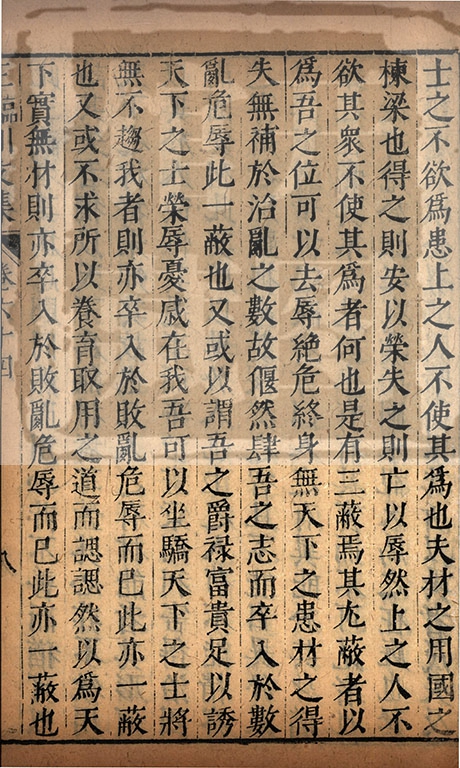 士之不欲爲患上之人不使其爲也夫材之用國之
棟梁也得之則安以榮失之則亡以辱然上之人不
欲其衆不使其爲者何也是有三蔽焉其尢蔽者以
爲吾之位可以去辱絶危終身無天下之患材之得
失無補於治亂之數故偃然肆吾之志而卒入於敗
亂危辱此一蔽也又或以謂吾之爵禄富貴足以誘
天下之士榮辱憂戚在我吾可以坐驕天下之士將
無不趨我者則亦卒入於敗亂危辱而已此亦一蔽
也又或不求所以養育取用之道而諰諰然以爲天
下實無材則亦卒入於敗亂危辱而已此亦一蔽也
王臨川文集 卷六十四 八